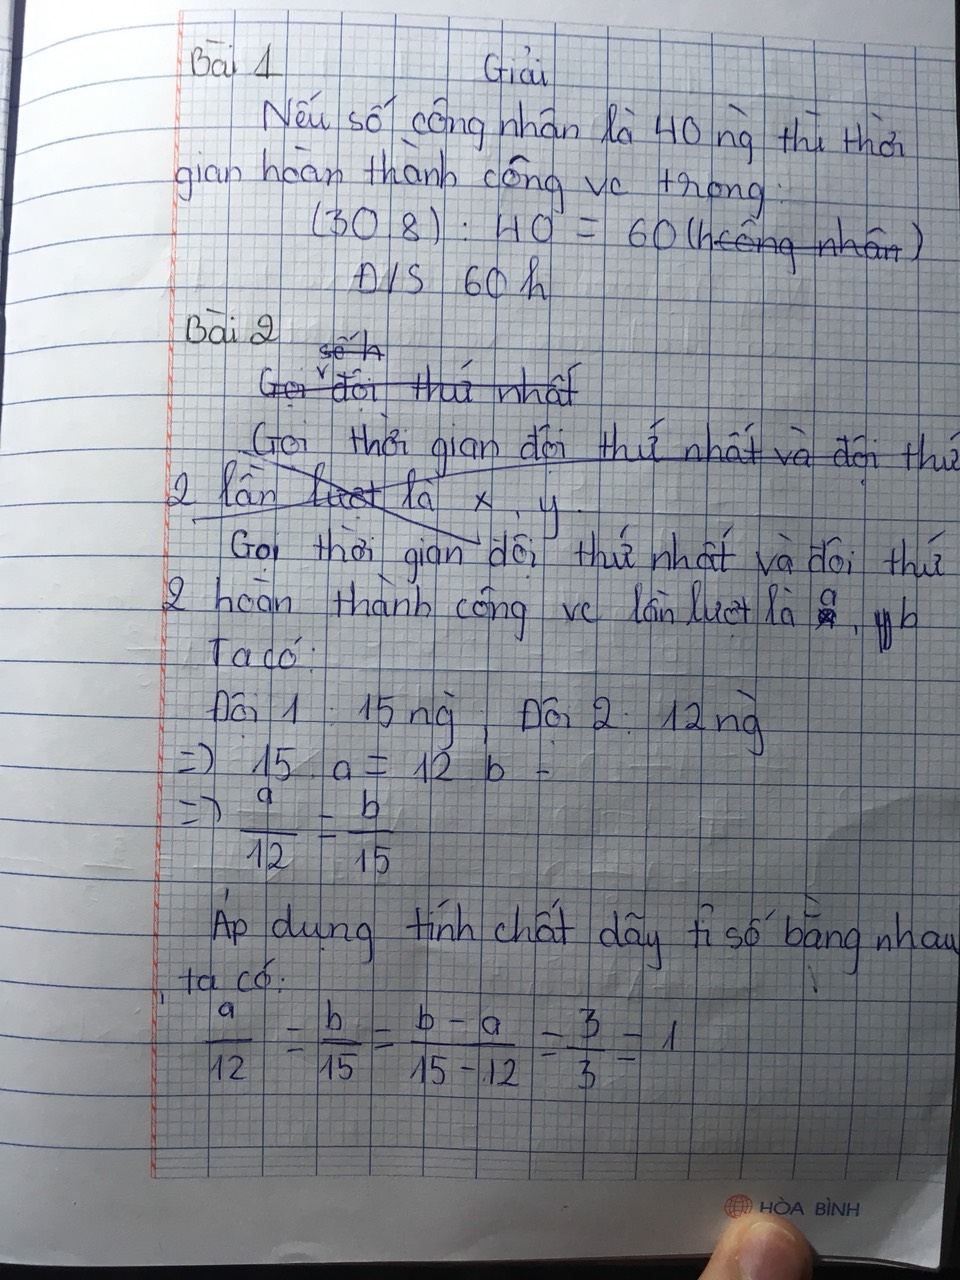 Bài 1 Giải
Nếu số công nhân là 40 ng̀ thì thời
gian hoàn thành công vc trong:
(30.8) : 40 = 60 (h công nhân)
Đ/S 60 h
Bài 2
số h
Gọi đội thứ nhất
Gọi thời gian đội thứ nhất và đội thứ
2 lần lượt là x, y.
Gọi thời gian đội thứ nhất và đội thứ
2 hoàn thành công vc lần lượt là a, b
Ta có:
Đội 1 : 15 ng̀, Đội 2: 12 ng̀
=> 15 . a = 12 b -
=> a/12 = b/15
Áp dụng tính chất dãy tỉ số bằng nhau
, ta có:
a/12 = b/15 = b - a/15 - 12 = 3/3 = 1
HÒA BÌNH